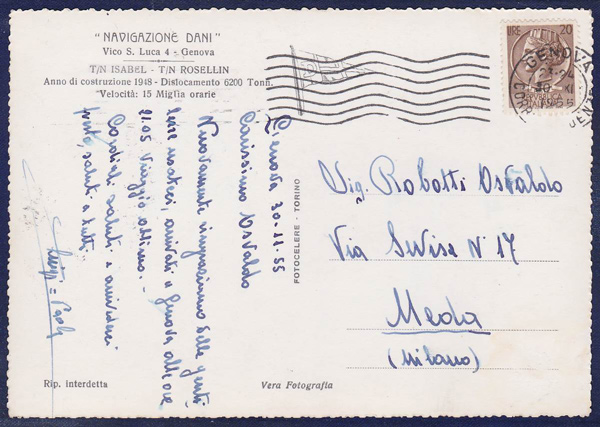 "NAVIGAZIONE DANI"
Vico S. Luca 4 - Genova
T/N ISABEL - T/N ROSELLIN
Anno di costruzione 1948 - Dislocamento 6200 Tonn.
Velocità: 15 Miglia orarie
Genova 30-11-55
Carissimo Osvaldo
Nuovamente ringraziamo delle genti-
arrivati a Genova alle ore
21.05 Viaggio ottimo.-
Cordiali saluti e
saluti a tutti
Luigi = Paola
Rip. interdetta
Vera Fotografia
FOTOCELERE - TORINO
LIRE 20
REPUBBLICA
ITALIANA
GENOVA
XI
Sig. Robotti Osvaldo
Via Svise N 17
Meda
(Milano)